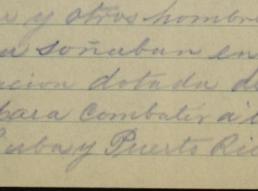 y otros hombre
soñaban en
cion dotada d
para combatir á
Cuba y Puerto Ric